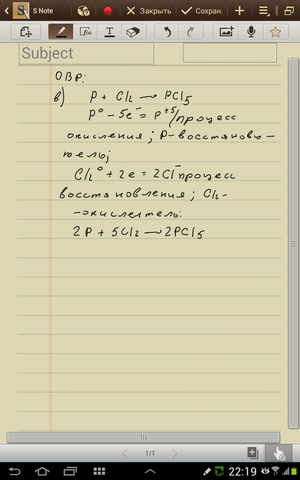 S Note
Закрыть
Сохран.
Subject
ОВР:
в) P + Cl2 → PCl5
P⁰ - 5e⁻ = P⁺⁵/процесс
окисления; P-восстанови-
тель;
Cl2⁰ + 2e = 2Cl⁻ процесс
восстановления; Cl2-
-окислитель.
2P + 5Cl2 → 2PCl5
1/1
22:19